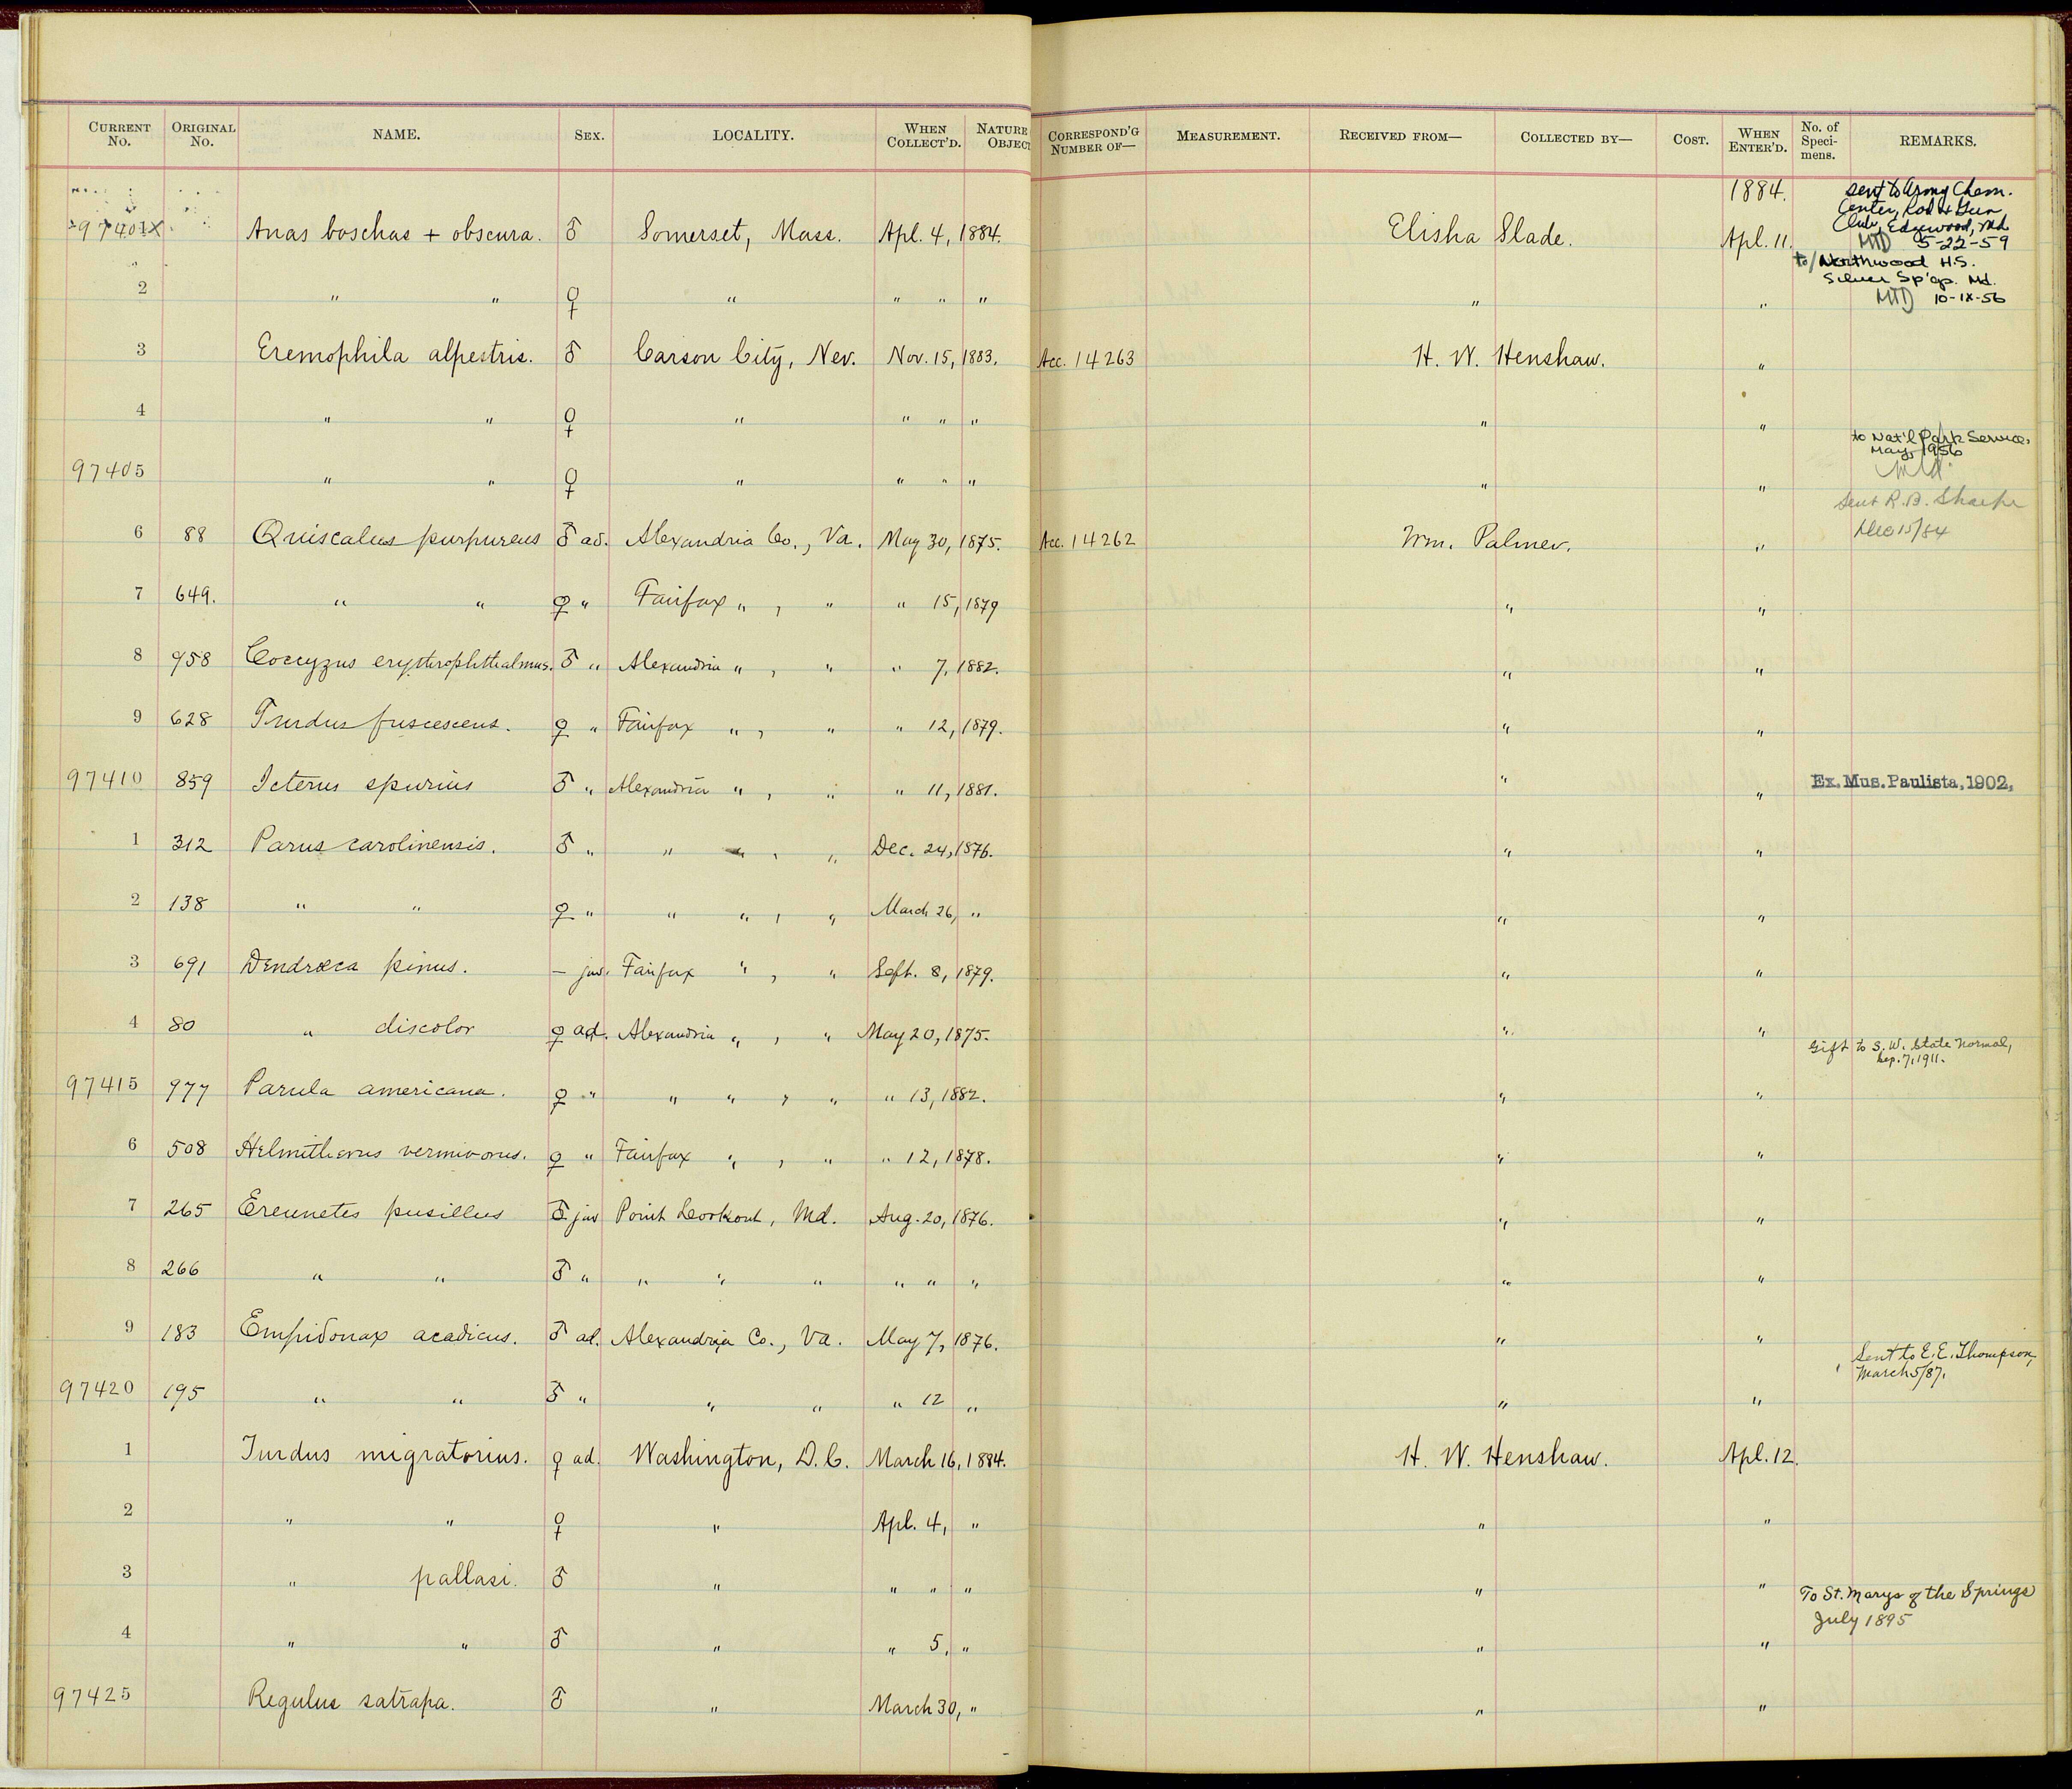 CURRENT No. ORIGINAL No. NAME. SEX. LOCALITY. WHEN COLLECT'D. NATURE OBJECT CORRESPOND'G NUMBER OF— MEASUREMENT. RECEIVED FROM— COLLECTED BY— COST. WHEN ENTER'D. No. of Specimens. REMARKS.
1884. sent to Army Chem.
Center, Rod & Gun
Club, Edgewood, Md
97401X Anas boschas + obscura. ♂ Somerset, Mass. Apl. 4, 1884. Elisha Slade. Apl. 11. MTD 5-22-59
to/ Northwood H.S.
Silver Sp'gs. Md.
2 " " ♀ " " " " " " MTD 10-IX-56
3 Eremophila alpestris. ♂ Carson City, Nev. Nov. 15, 1883. Acc. 14263 H. W. Henshaw. "
4 " " ♀ " " " " " "
to Nat'l Park Service,
May, 1956
97405 " " ♀ " " " " " "
Sent R. B. Sharpe
6 88 Quiscalus purpureus ♂ ad. Alexandria Co., Va. May 30, 1875. Acc. 14262 Wm. Palmer. " Dec 15/84
7 649. " " ♀ " Fairfax " , " " 15, 1879 " "
8 958 Coccyzus erythrophthalmus. ♂ " Alexandria " , " " 7, 1882. " "
9 628 Turdus fuscescens. ♀ " Fairfax " , " " 12, 1879. " "
97410 859 Icterus spurius ♂ " Alexandria " , " " 11, 1881. " " Ex. Mus. Paulista, 1902,
1 312 Parus carolinensis. ♂ " " " , " Dec. 24, 1876. " "
2 138 " " ♀ " " " , " March 26, " " "
3 691 Dendrœca pinus. – juv. Fairfax " , " Sept. 8, 1879. " "
4 80 " discolor ♀ ad. Alexandria " , " May 20, 1875. " "
Gift to S. W. State Normal,
Sep. 7, 1911.
97415 977 Parula americana. ♀ " " " , " " 13, 1882. " "
6 508 Helmitherus vermivorus. ♀ " Fairfax " , " " 12, 1878. " "
7 265 Ereunetes pusillus ♂ juv Point Lookout, Md. Aug. 20, 1876. " "
8 266 " " ♂ " " " " " " " " "
9 183 Empidonax acadicus. ♂ ad. Alexandria Co., Va. May 7, 1876. " "
Sent to E. E. Thompson,
March 5/87.
97420 195 " " ♂ " " " " 12 " " "
1 Turdus migratorius. ♀ ad. Washington, D.C. March 16, 1884. H. W. Henshaw. Apl. 12.
2 " " ♀ " Apl. 4, " " "
3 " pallasi. ♂ " " " " " "
To St. Marys of the Springs
July 1895
4 " " ♂ " " 5, " " "
97425 Regulus satrapa. ♂ " March 30, " " "